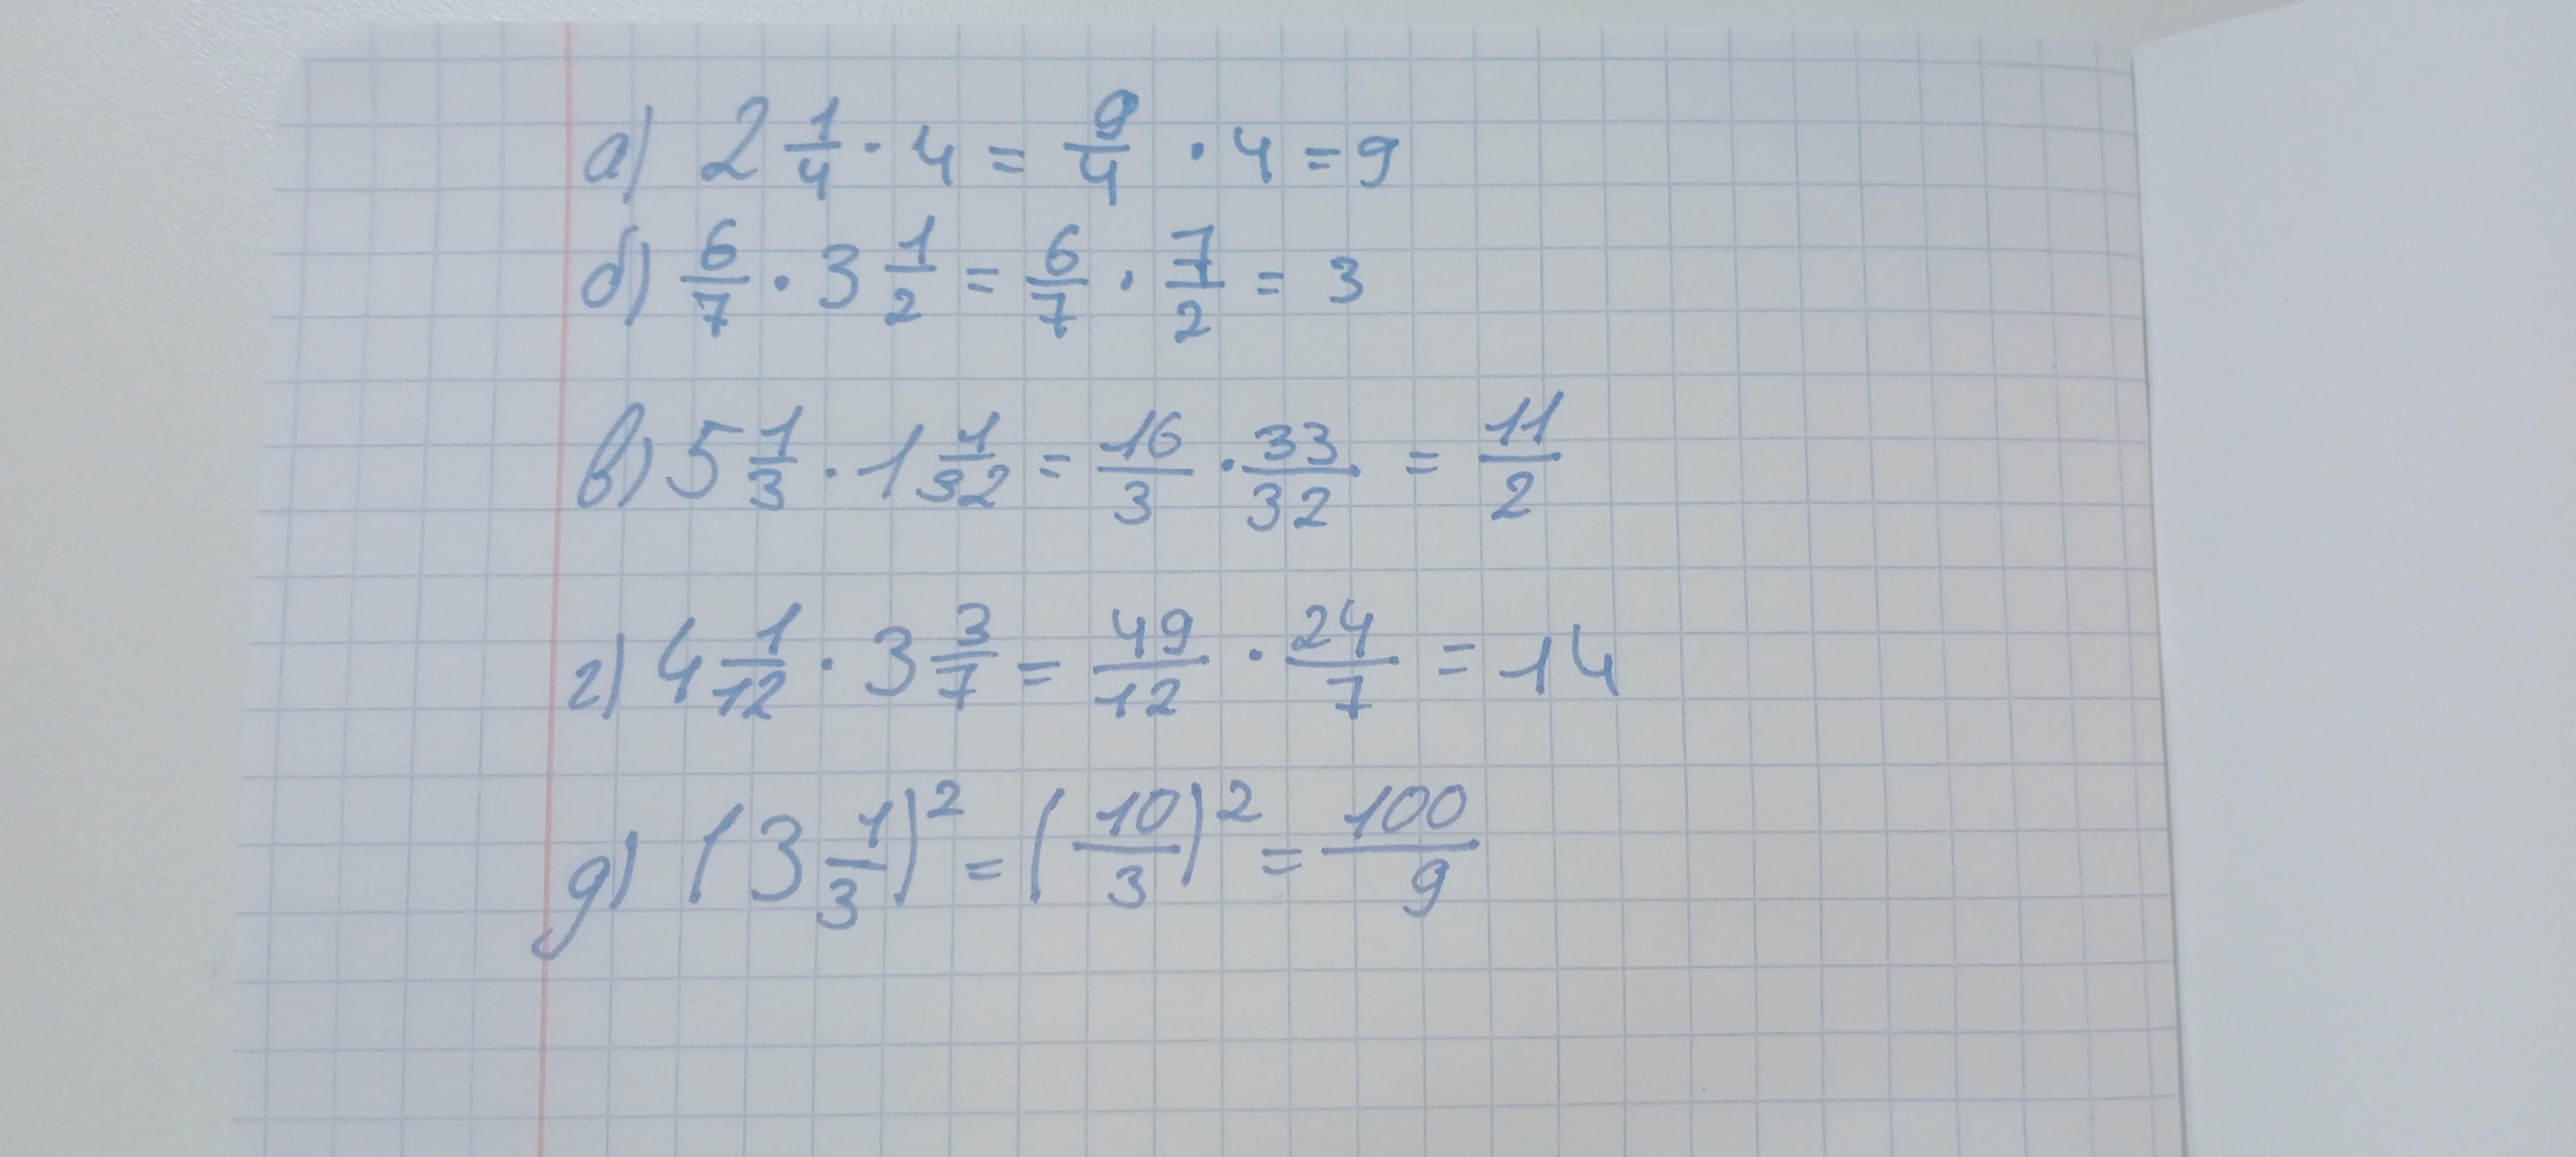 а) 2 1/4 · 4 = 9/4 · 4 = 9
б) 6/7 · 3 1/2 = 6/7 · 7/2 = 3
в) 5 1/3 · 1 1/32 = 16/3 · 33/32 = 11/2
г) 4 1/12 · 3 3/7 = 49/12 · 24/7 = 14
д) (3 1/3)² = (10/3)² = 100/9